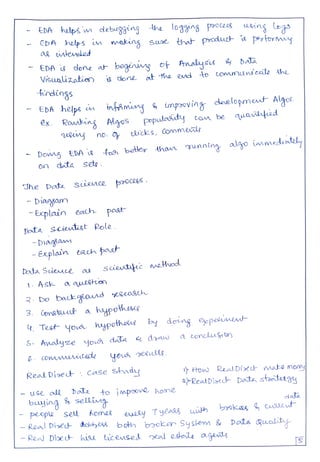 - EDA helps in debugging the logging process using logs
- EDA helps in making sure that product is performing
as intended
- EDA is done at begining of Analysis & Data
Visualization is done at the end to communicate the
findings
- EDA helps in informing & improving development Algos
ex. Ranking Algos popularity can be quantified
using no. of clicks, comments
- Doing EDA is far better than running algo immediately
on data sets.
The Data Science process.
- Diagram
- Explain each part
Data Scientist Role.
- Diagram
- Explain each part
Data Science as scientific method
1. Ask a question
2. Do background research
3. Construct a hypothesis
4. Test your hypothesis by doing experiment
5. Analyze your data & draw a conclusion
6. communicate your results
Real Direct : Case Study
1) How RealDirect make money
2) RealDirect Data strategy
- use all Data to improve home
buying & selling
- people sell homes every 7 years with brokers & current
data
- Real Direct address both broker System & Data Quality
- Real Direct hire licensed real estate agents